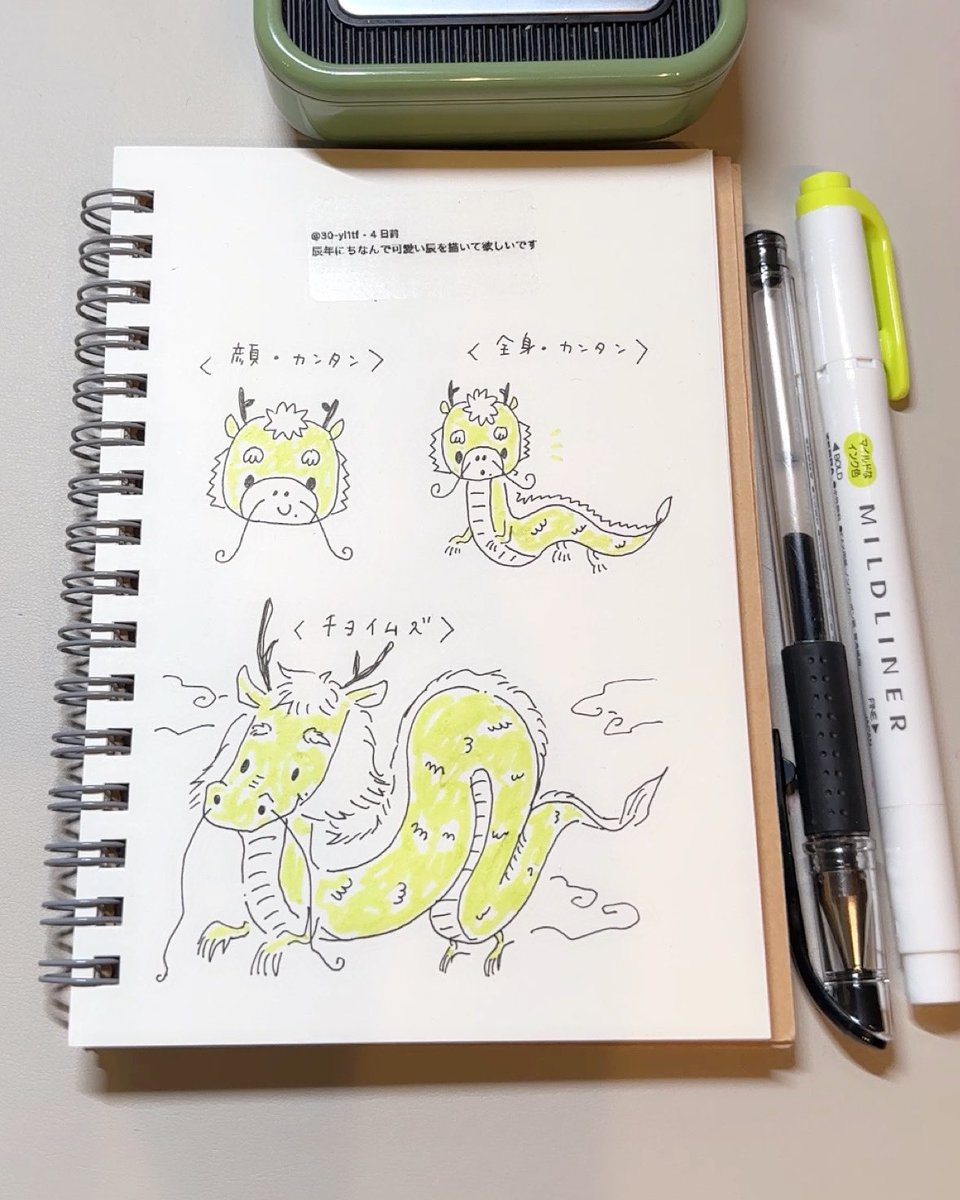 @30-yl1tf・4 日前
辰年にちなんで可愛い辰を描いて欲しいです
〈 顔・カンタン 〉
〈 全身・カンタン 〉
〈 チョイムズ 〉
マイルドな
インク色
GOLD
MILDLINER
FINE